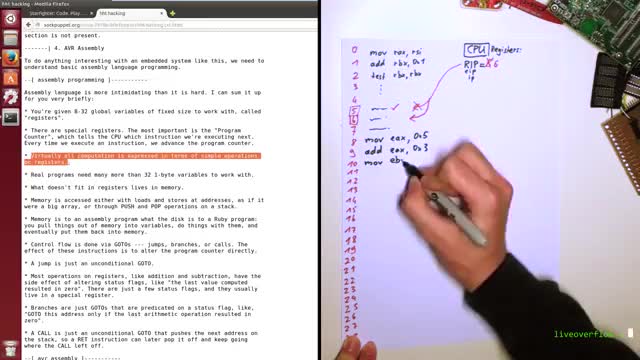 Mozilla Firefox
Starfighter: Code. Play....
h4t hacking
section is not present.
-------| 4. AVR Assembly
To do anything interesting with an embedded system like this, we need
to understand basic assembly language programming.
--[ assembly programming ]-----------
Assembly language is more intimidating than it is hard. I can sum it
up for you very briefly:
* You're given 8-32 global variables of fixed size to work with, called
"registers".
* There are special registers. The most important is the "Program
Counter", which tells the CPU which instruction we're executing next.
Every time we execute an instruction, we advance the program counter.
* Virtually all computation is expressed in terms of simple operations
on registers.
* Real programs need many more than 32 1-byte variables to work with.
* What doesn't fit in registers lives in memory.
* Memory is accessed either with loads and stores at addresses, as if
it were a big array, or through PUSH and POP operations on a stack.
* Memory is to an assembly program what the disk is to a Ruby program:
you pull things out of memory into variables, do things with them, and
eventually put them back into memory.
* Control flow is done via GOTOs --- jumps, branches, or calls. The
effect of these instructions is to alter the program counter directly.
* A jump is just an unconditional GOTO.
* Most operations on registers, like addition and subtraction, have the
side effect of altering status flags, like "the last value computed
resulted in zero". There are just a few status flags, and they usually
live in a special register.
* Branches are just GOTOs that are predicated on a status flag, like,
"GOTO this address only if the last arithmetic operation resulted in
zero".
* A CALL is just an unconditional GOTO that pushes the next address on
the stack, so a RET instruction can later pop it off and keep going
where the CALL left off.
--[ avr assembly ]-----------
CPU Registers:
RIP = 5 6
eip
ip
0 mov rax, rsi
1 add rbx, 0x1
2 test rbx, rbx
3
4
5
6
7
8 mov eax, 0x5
9 add eax, 0x3
10 mov ebx
11
12
13
14
15
16
17
18
19
20
21
22
23
24
25
26
27
liveoverflow